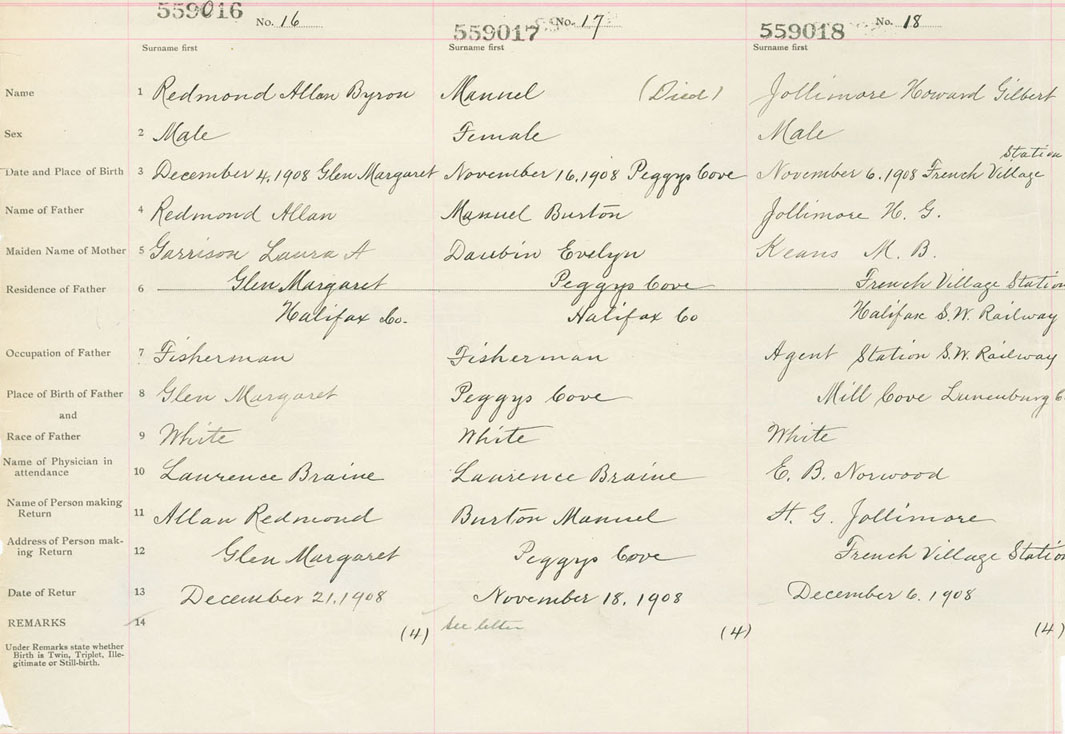 559016 No. 16 559017 No. 17 559018 No. 18
Surname first Surname first Surname first
Name 1 Redmond Allan Byron Manuel (Died) Jollimore Howard Gilbert
Sex 2 Male Female Male
Station
Date and Place of Birth 3 December 4, 1908 Glen Margaret November 16, 1908 Peggys Cove November 6, 1908 French Village
Name of Father 4 Redmond Allan Manuel Burton Jollimore H. G.
Maiden Name of Mother 5 Garrison Laura A Daubin Evelyn Keans M. B.
Residence of Father 6 Glen Margaret Peggys Cove French Village Station
Halifax Co. Halifax Co Halifax S.W. Railway
Occupation of Father 7 Fisherman Fisherman Agent Station S.W. Railway
Place of Birth of Father 8 Glen Margaret Peggys Cove Mill Cove Lunenburg C
and
Race of Father 9 White White White
Name of Physician in
attendance 10 Laurence Braine Laurence Braine E. B. Norwood
Name of Person making
Return 11 Allan Redmond Burton Manuel H. G. Jollimore
Address of Person mak-
ing Return 12 Glen Margaret Peggys Cove French Village Station
Date of Retur 13 December 21, 1908 November 18, 1908 December 6, 1908
REMARKS 14 (4) See letter (4) (4)
Under Remarks state whether
Birth is Twin, Triplet, Ille-
gitimate or Still-birth.